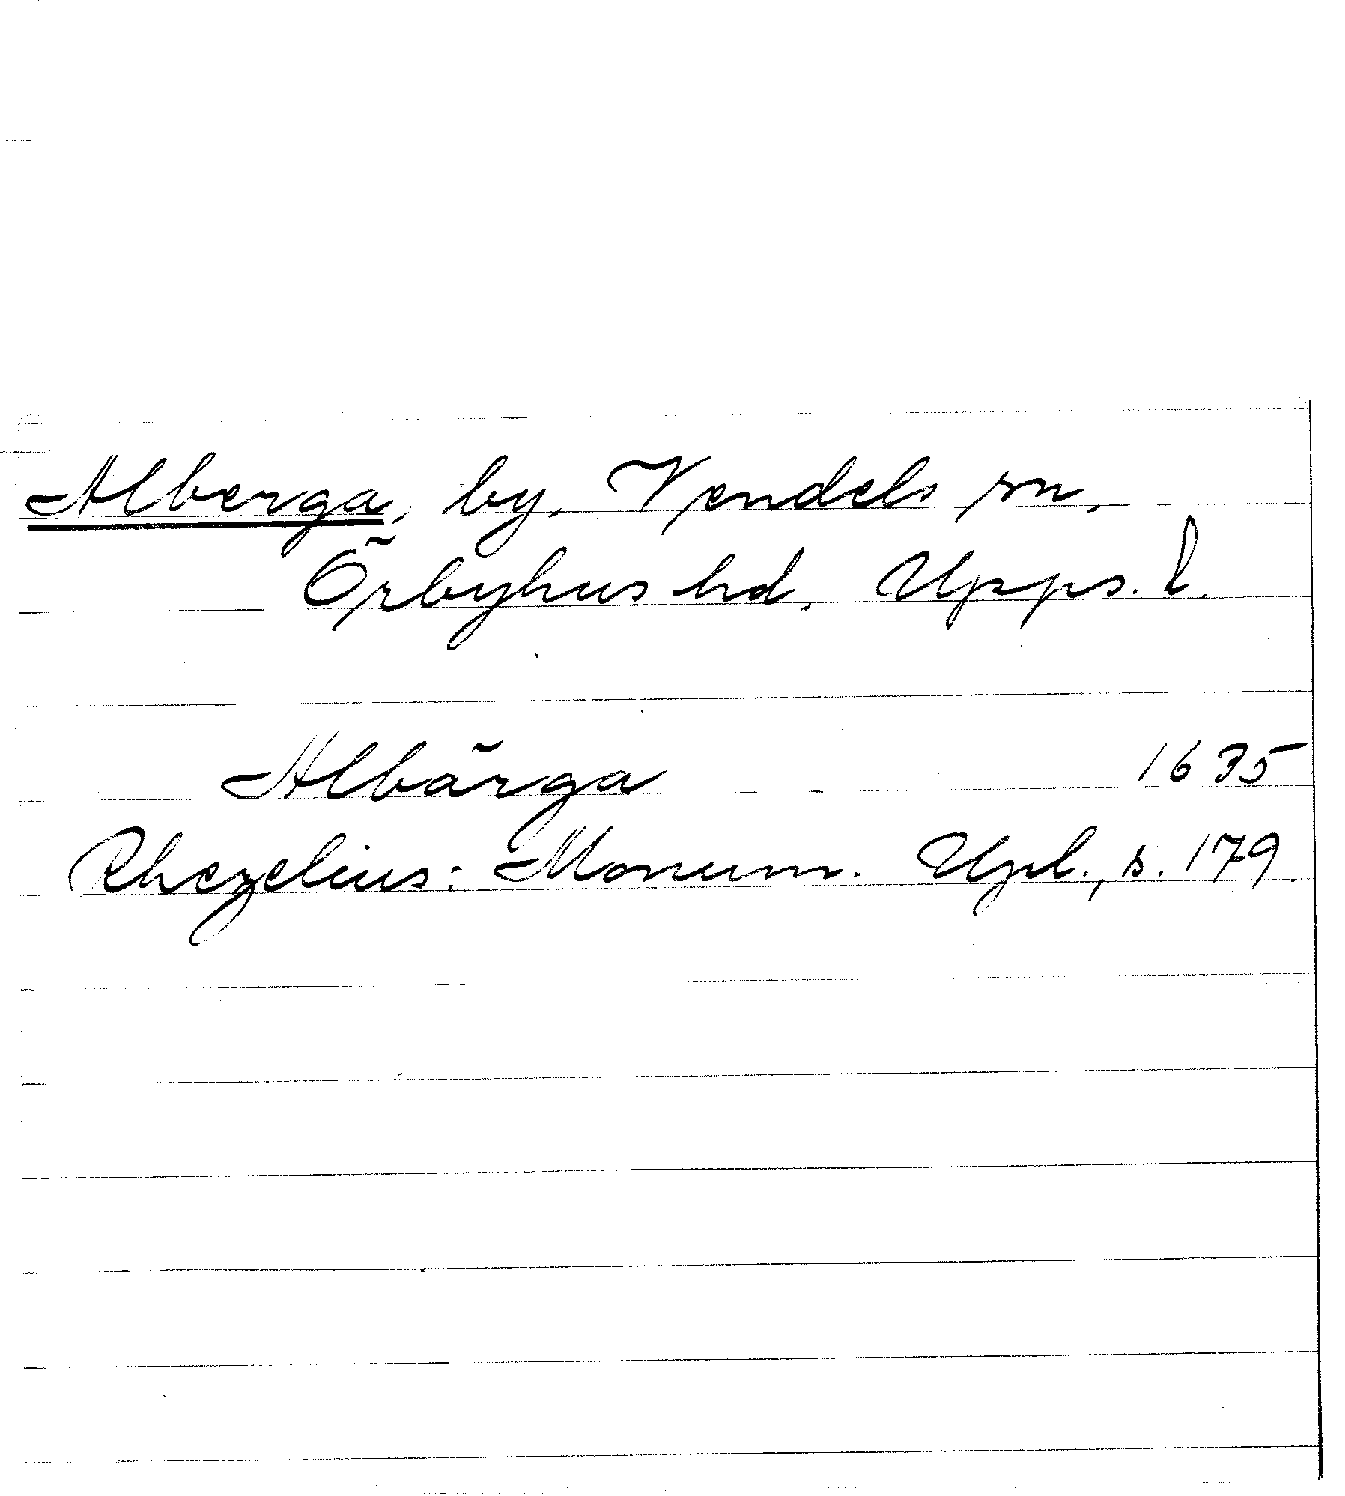 Alberga, by, Vendels sn,
Örbyhus hd, Upps. l.
Albärga 1635
Rhezelius: Monum. Upl., s. 179